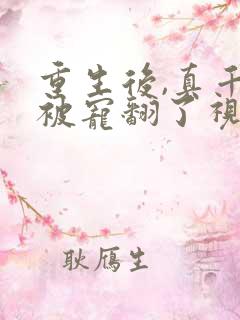 重生後,真千
被寵翻了視
耿鴈生